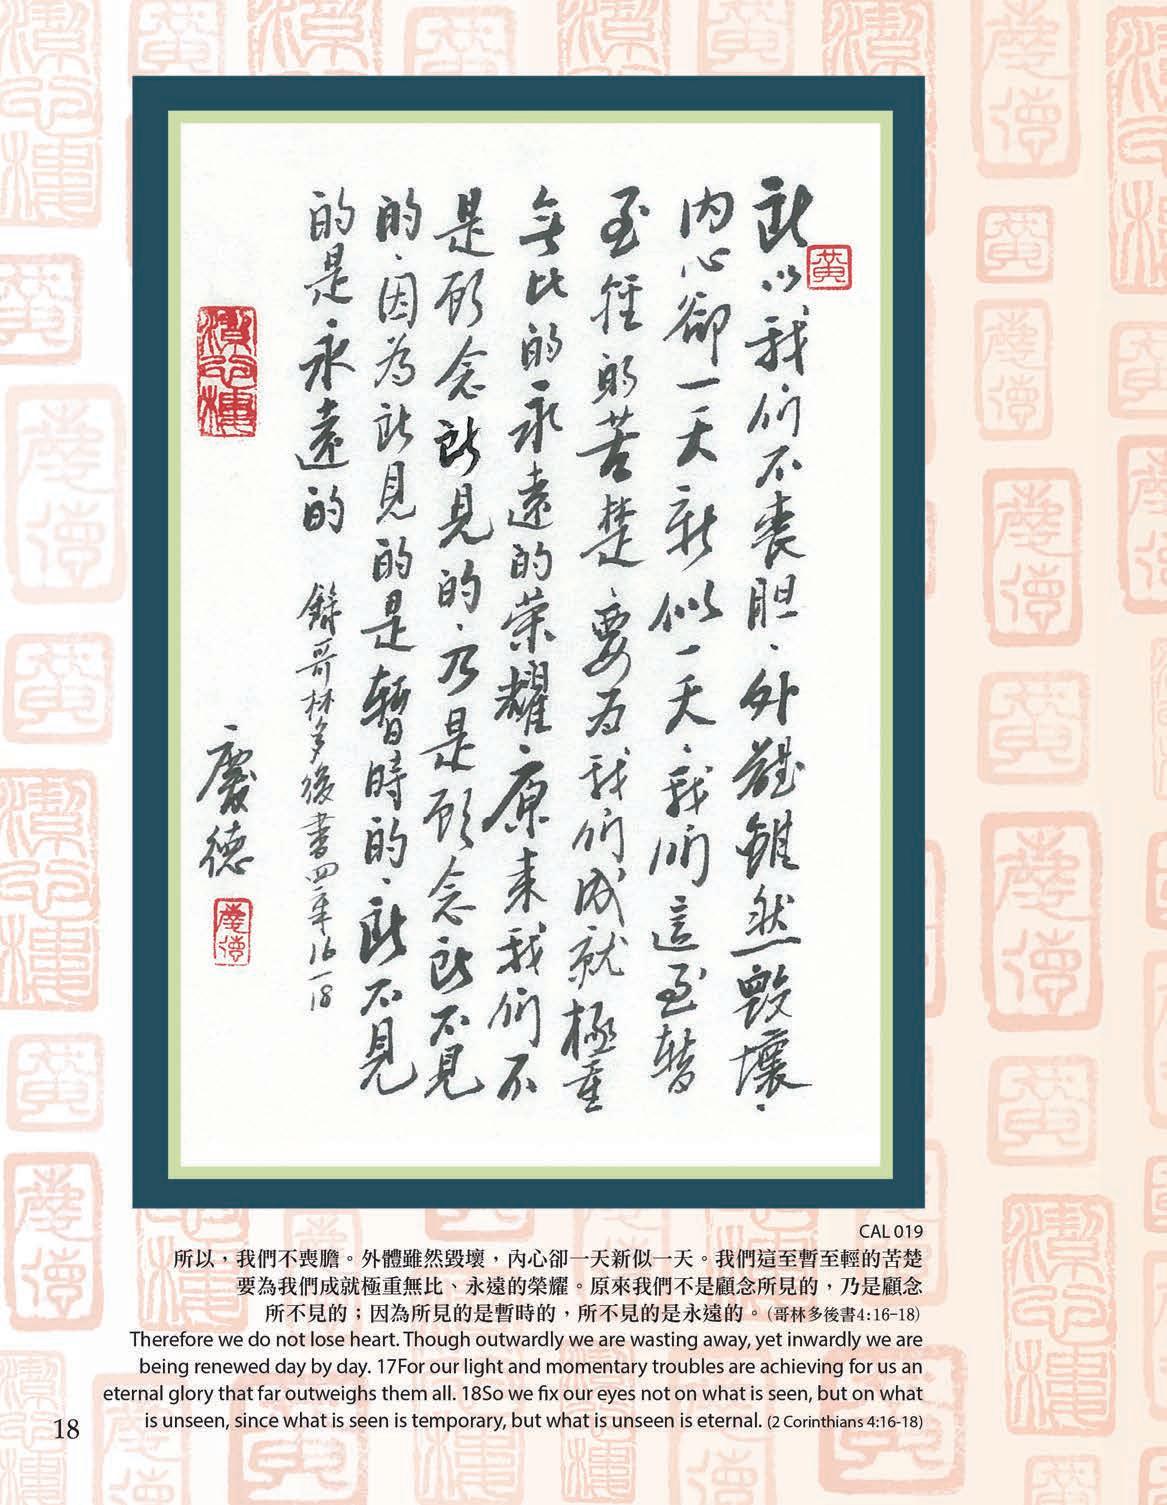 所以、我们不丧胆、外體雖然毁壞、
内心卻一天新似一天、我们這至暫
至軽的苦楚、要为我们成就極重
無比的永遠的荣耀、原来我们不
是顾念所見的、乃是顾念所不見
的、因為所見的是暫時的、所不見
的是永遠的
錄哥林多後書四章16-18
慶德
黃
慶德
CAL 019
所以，我們不喪膽。外體雖然毀壞，內心卻一天新似一天。我們這至暫至輕的苦楚
要為我們成就極重無比、永遠的榮耀。原來我們不是顧念所見的，乃是顧念
所不見的；因為所見的是暫時的，所不見的是永遠的。（哥林多後書4:16-18）
Therefore we do not lose heart. Though outwardly we are wasting away, yet inwardly we are
being renewed day by day. 17For our light and momentary troubles are achieving for us an
eternal glory that far outweighs them all. 18So we fix our eyes not on what is seen, but on what
is unseen, since what is seen is temporary, but what is unseen is eternal. (2 Corinthians 4:16-18)
18